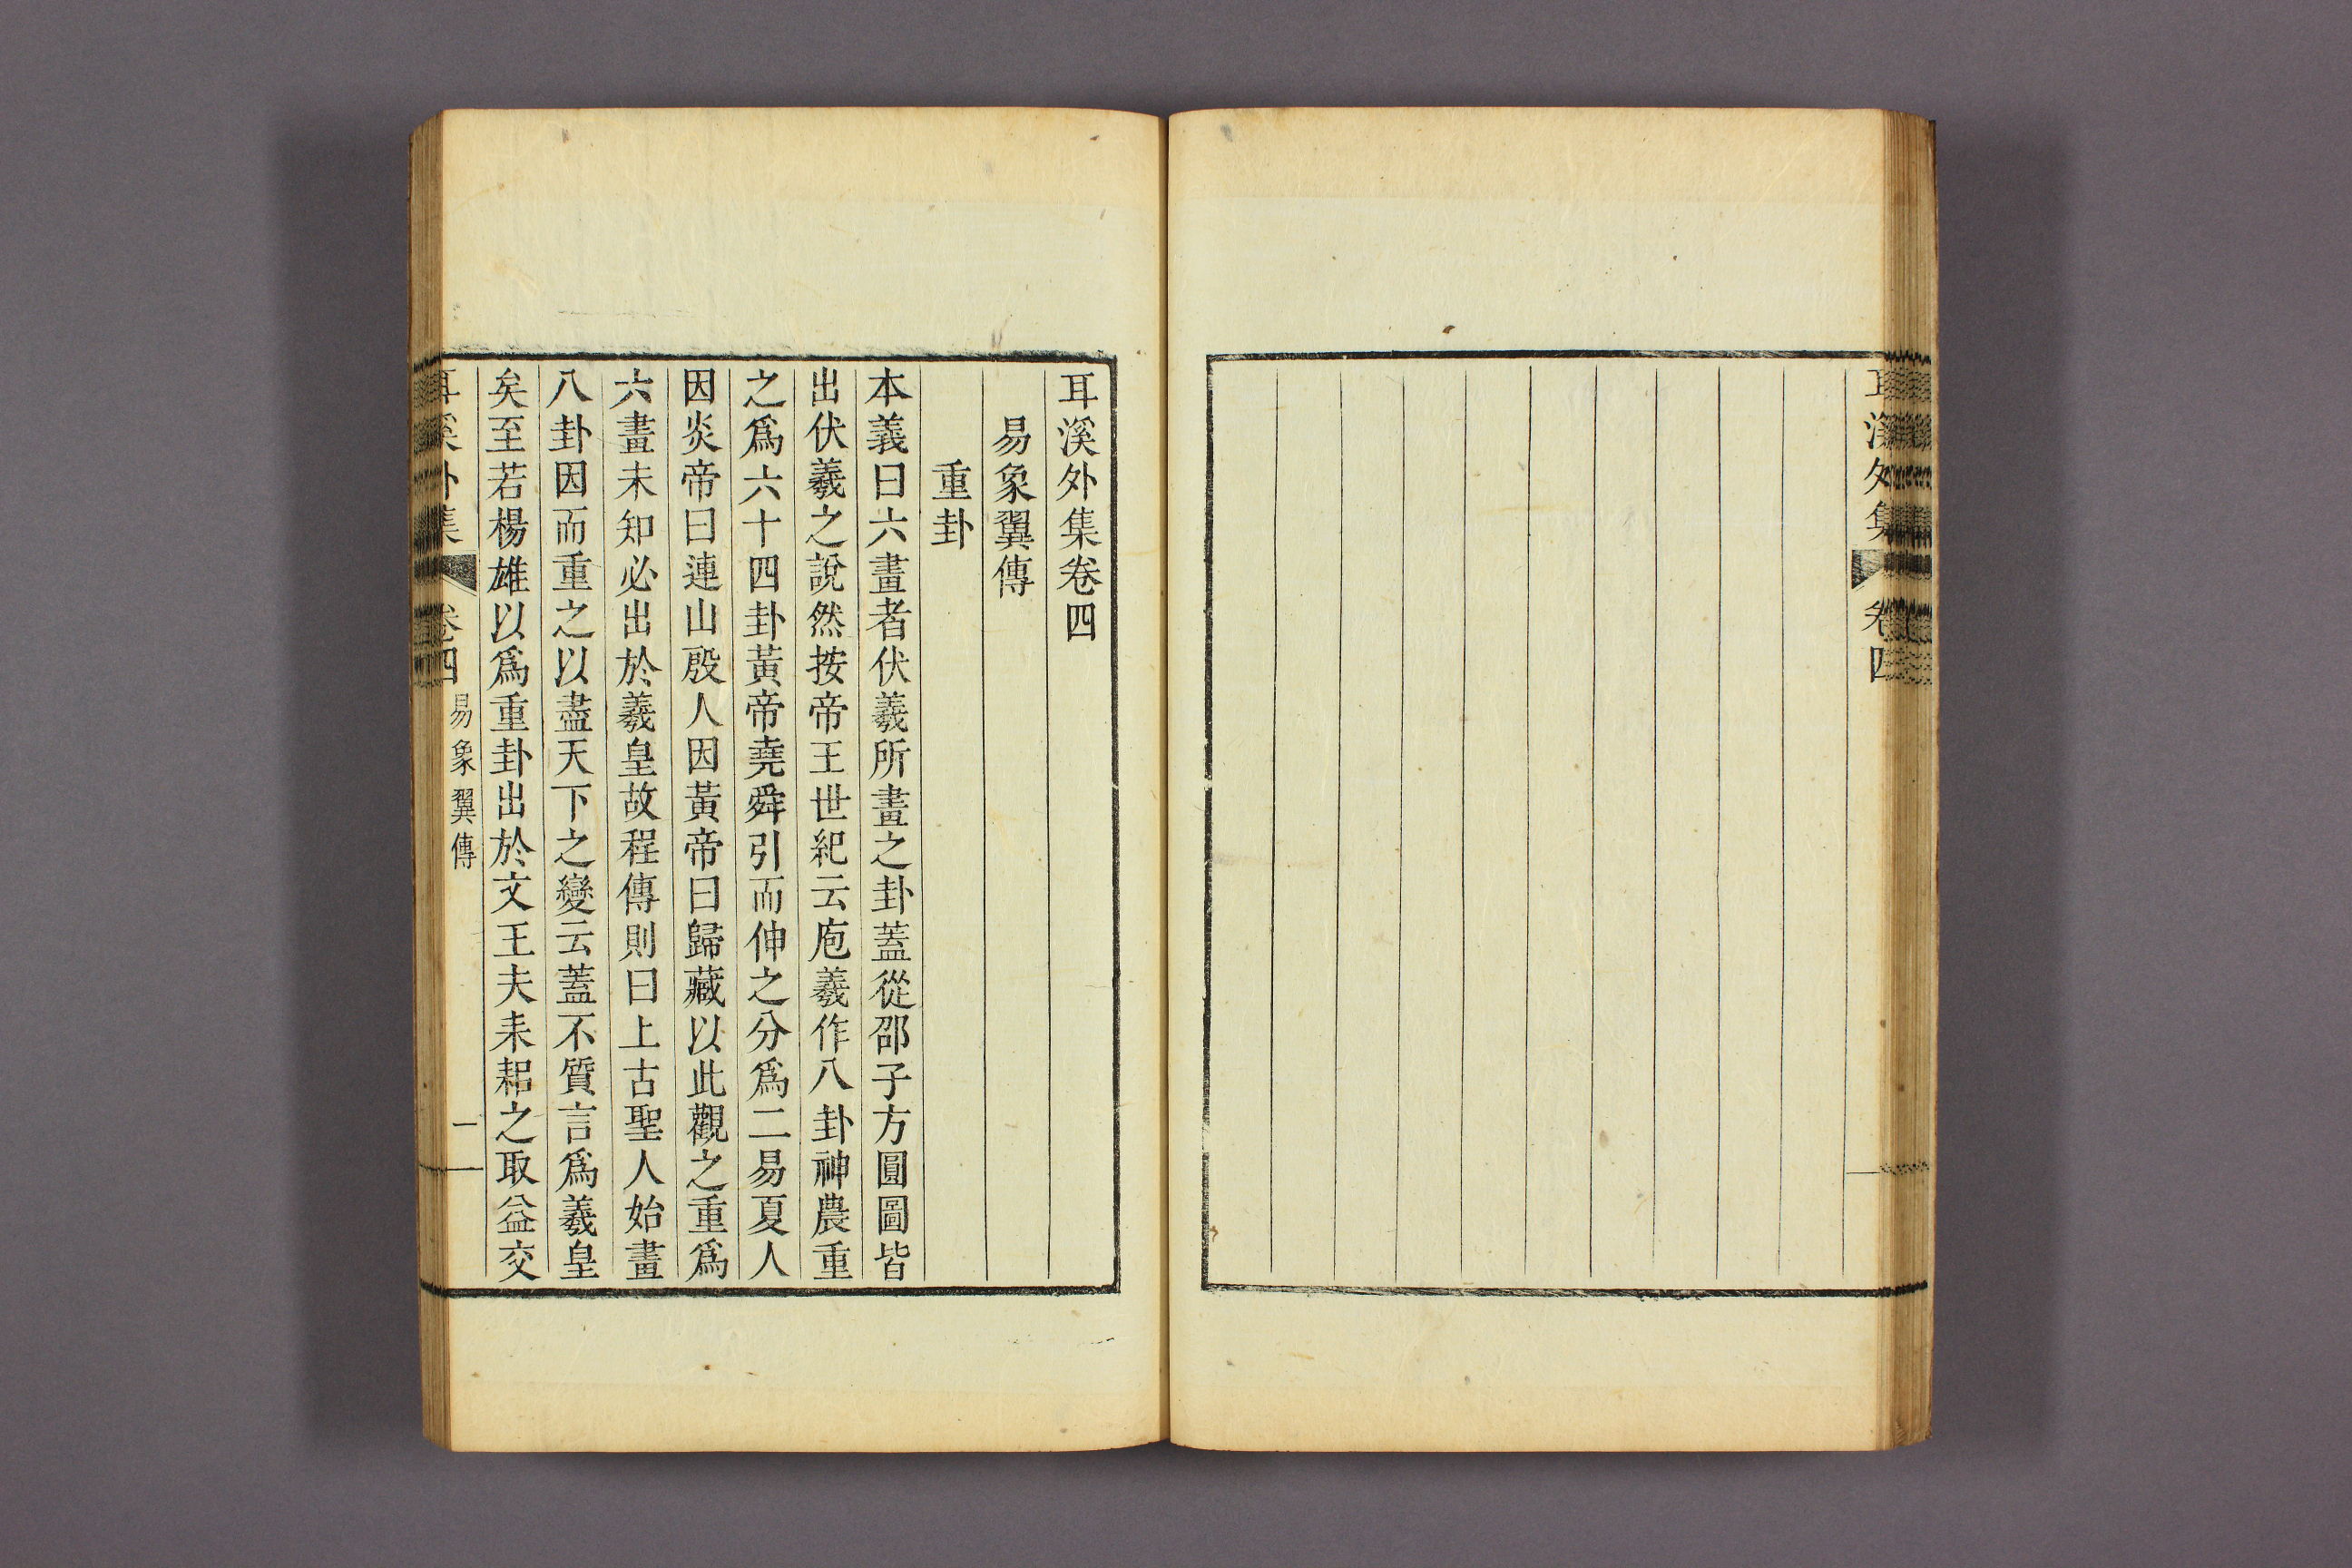 耳溪外集 卷四
耳溪外集卷四
易象翼傳
重卦
本義曰六畫者伏羲所畫之卦蓋從邵子方圓圖皆
出伏羲之說然按帝王世紀云庖羲作八卦神農重
之爲六十四卦黃帝堯舜引而伸之分爲二易夏人
因炎帝曰連山殷人因黃帝曰歸藏以此觀之重爲
六畫未知必出於羲皇故程傳則曰上古聖人始畫
八卦因而重之以盡天下之變云蓋不質言爲羲皇
矣至若楊雄以爲重卦出於文王夫耒耜之取益交
耳溪外集 卷四 易象翼傳 一